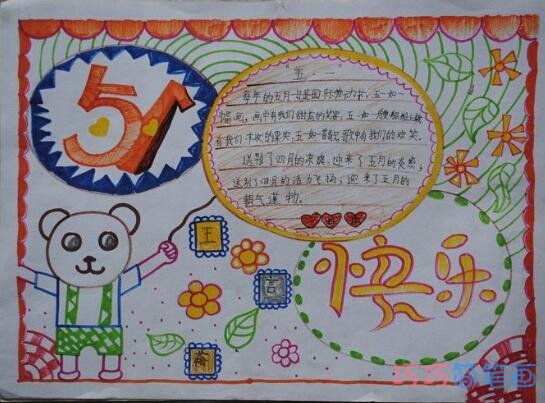 51
五·一
每年的五月一日是国际劳动节,五一如一
幅画,画中有我们甜美的欢笑,五一如一
有我们丰收的果实,五一如一首歌,歌中有我们的欢笑。
送别了四月的凉爽,迎来了五月的炎热;
送别了四月的活力飞扬,迎来了五月的
朝气蓬勃。
王
言
快乐
巧巧简笔画